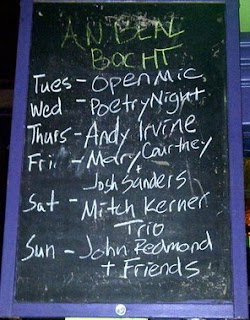 AN BEAL
BOCHT
Tues - OPEN MIC
Wed - Poetry Night
Thurs - Andy Irvine
Fri - Mary Courtney
+
Josh Sanders
Sat - Mitch Kerner
Trio
Sun - John Redmond
+ Friends